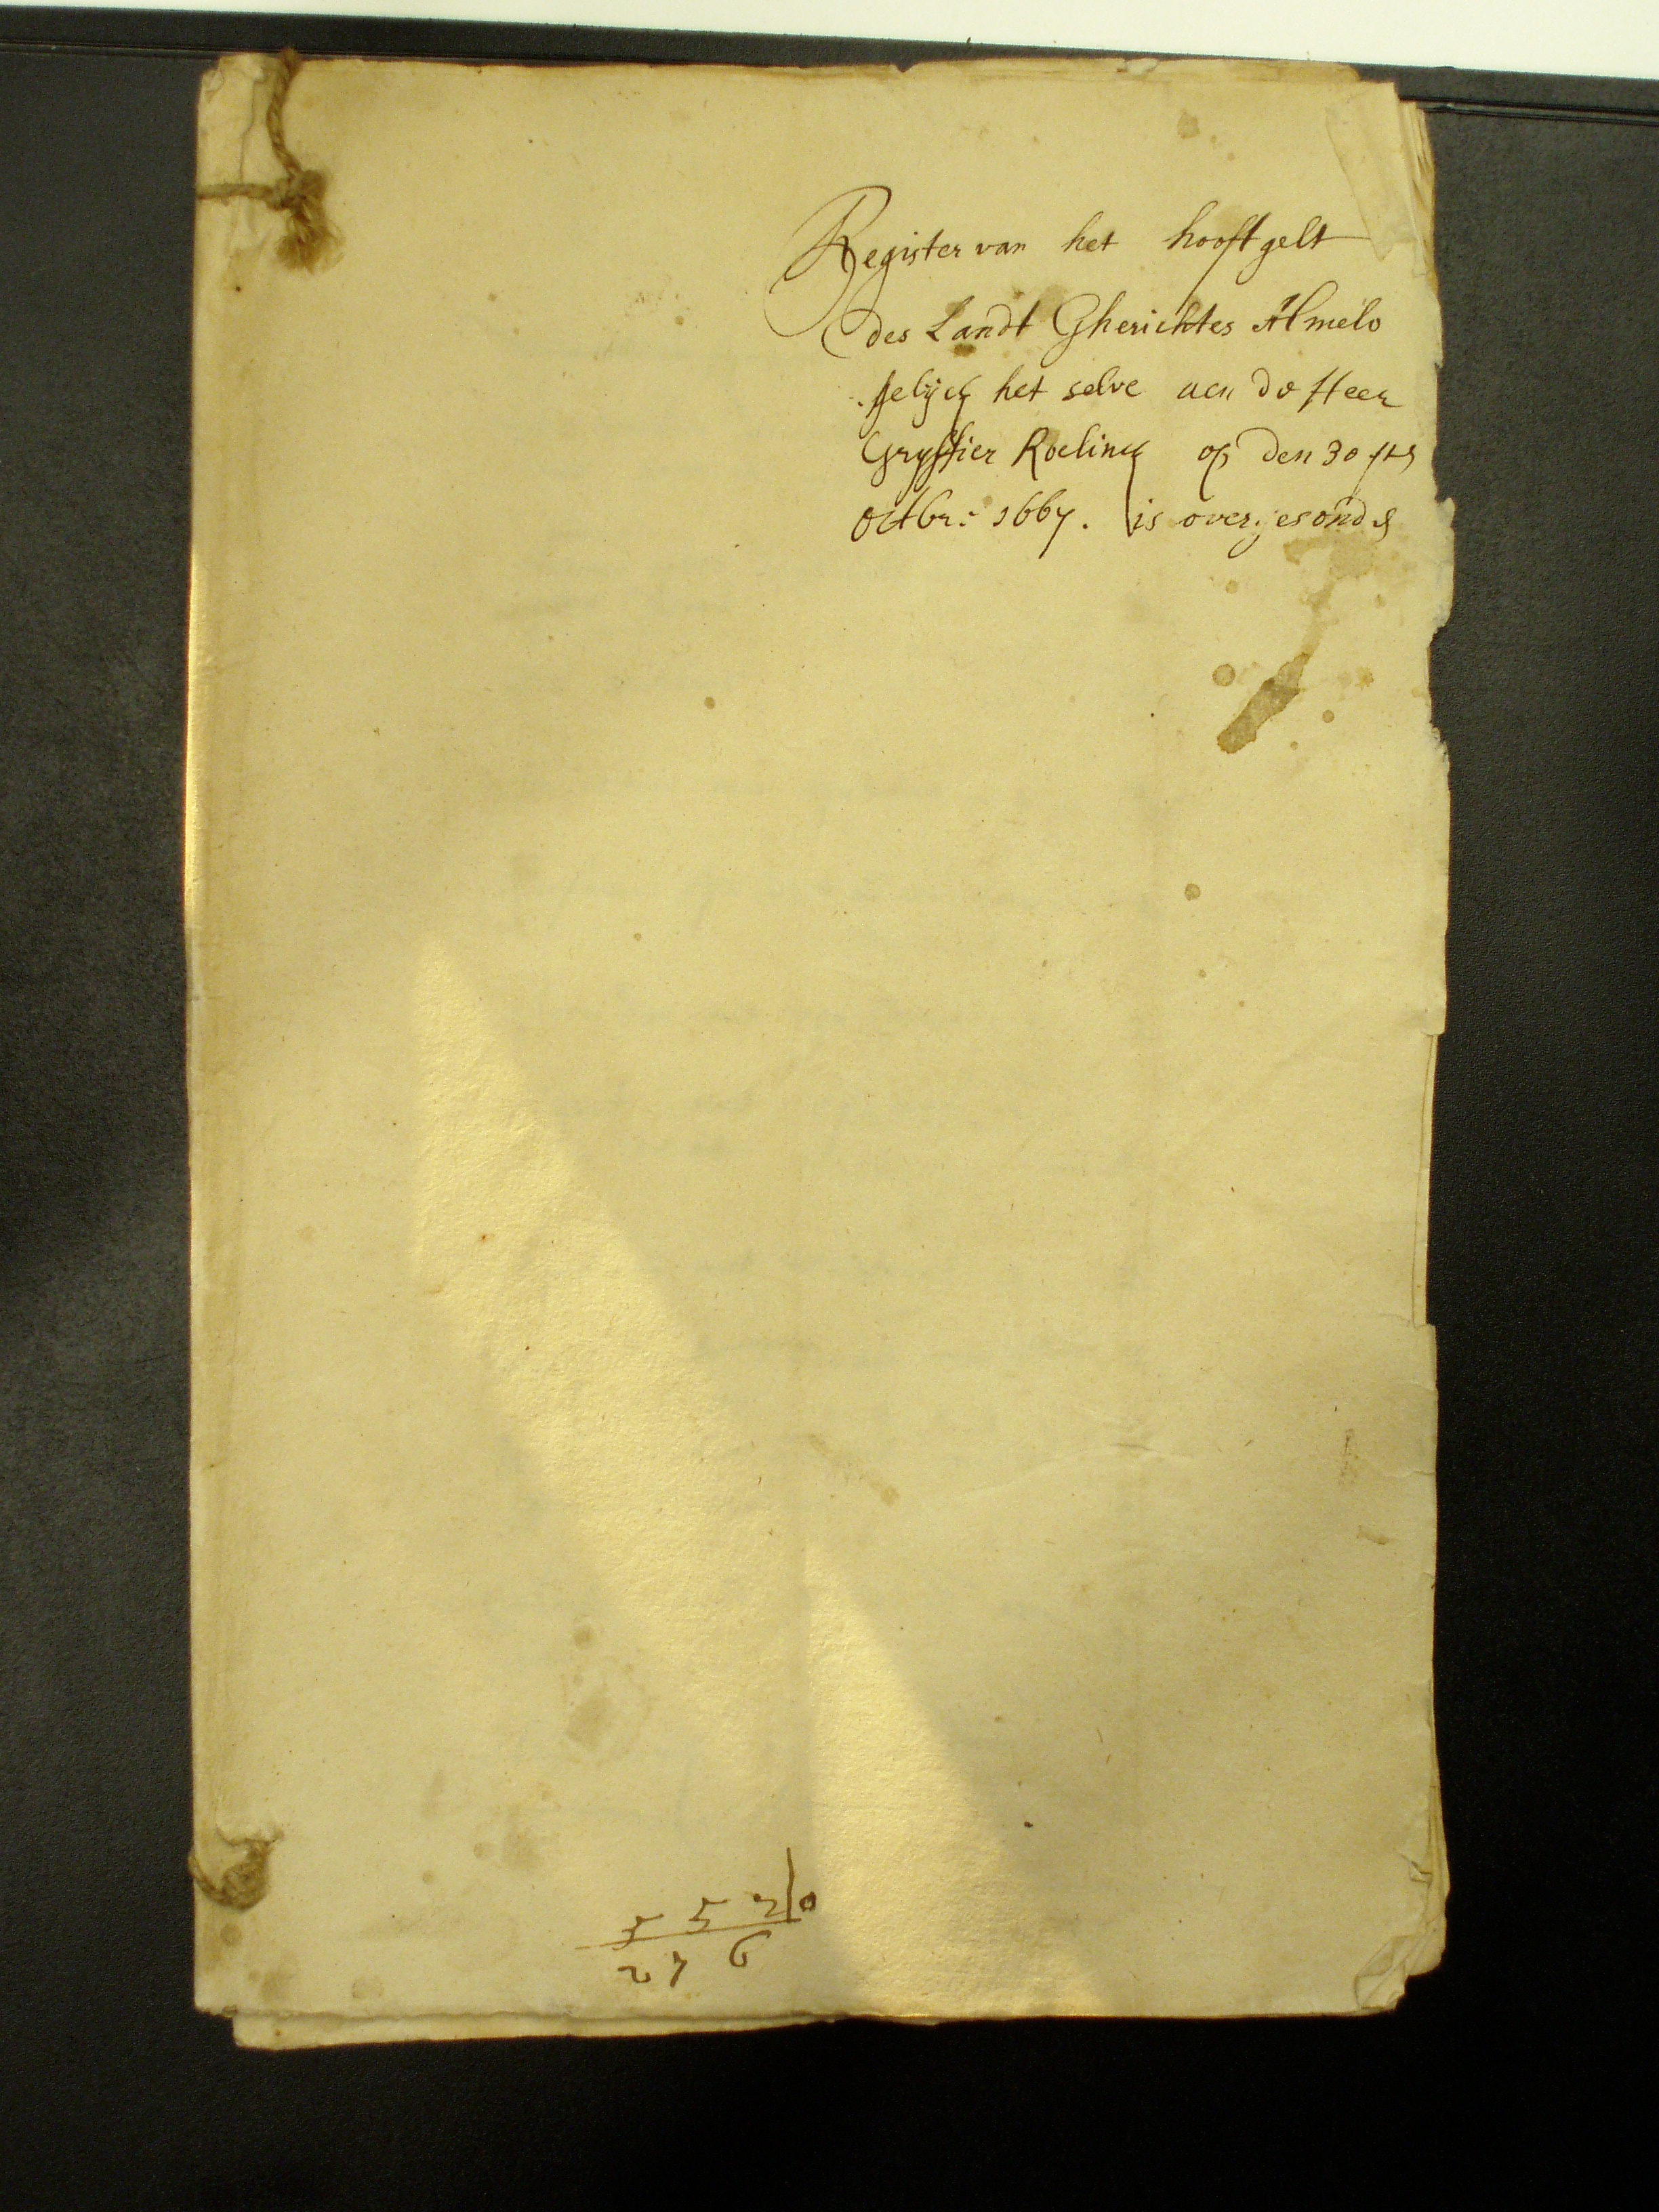 Register van het hooftgelt
des Landt Gherichtes Almelo
gelijck het selve aen de Heer
Gryffier Roelinck op den 30 sten
Octbr: 1667. is overgesonden
552|0
276